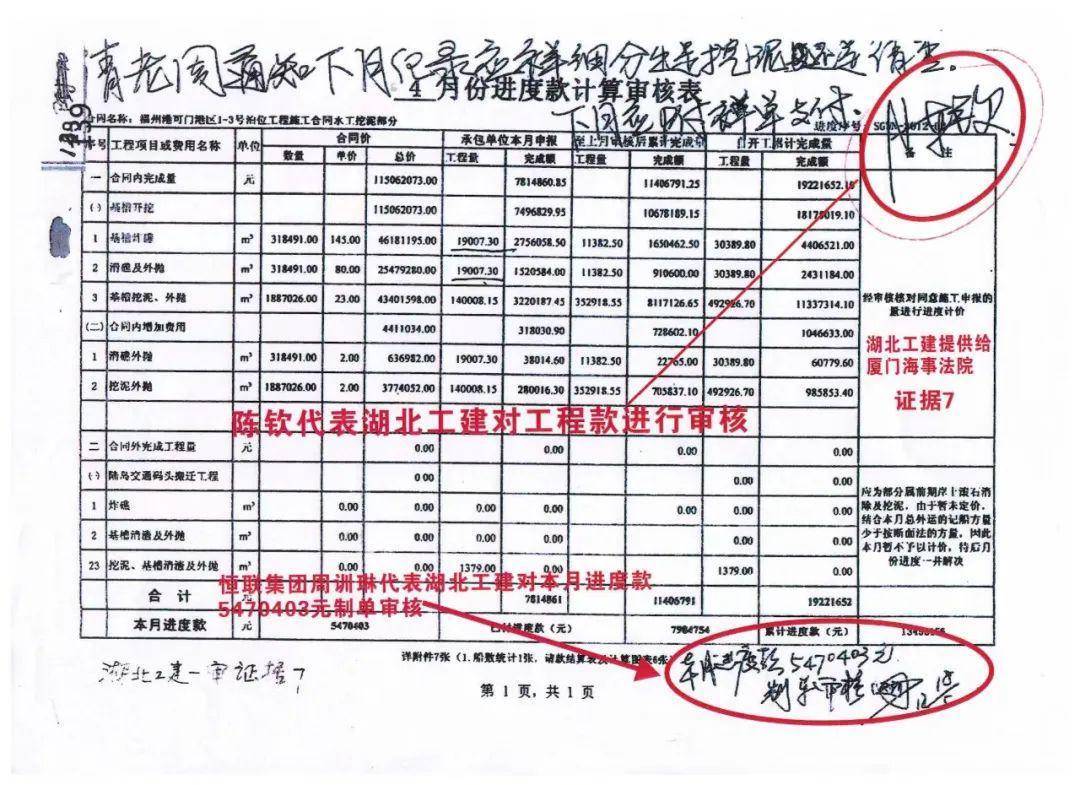 请老周通知下月纪录应详细分
4月份进度款计算审核表
下回应附详单支付.
合同名称: 福州港可门地区1-3号泊位工程施工合同水工挖泥部分 进度序号:
序号 工程项目或费用名称 单位 合同价 承包单位本月申报 至上月审核后累计完成量 自开工累计完成量 备 注
数量 单价 总价 工程量 完成额 工程量 完成额 工程量 完成额
一 合同内完成量 元 115062073.00 7814860.85 11406791.25 19221652.10
(一) 基槽开挖 115062073.00 7496829.95 10678189.15 18175019.10
1 基槽炸礁 m³ 318491.00 145.00 46181195.00 19007.30 2756058.50 11382.50 1650462.50 30389.80 4406521.00
2 清礁及外抛 m³ 318491.00 80.00 25479280.00 19007.30 1520584.00 11382.50 910600.00 30389.80 2431184.00
3 基槽挖泥、外抛 m³ 1887026.00 23.00 43401598.00 140008.15 3220187.45 352918.55 8117126.65 492926.70 11337314.10
(二) 合同内增加费用 4411034.00 318030.90 728602.10 1046633.00
1 清礁外抛 m³ 318491.00 2.00 636982.00 19007.30 38014.60 11382.50 22765.00 30389.80 60779.60
2 挖泥外抛 m³ 1887026.00 2.00 3774052.00 140008.15 280016.30 352918.55 705837.10 492926.70 985853.40
经审核核对同意施工申报的
量进行进度计价
湖北工建提供给
厦门海事法院
证据7
陈钦代表湖北工建对工程款进行审核
二 合同外完成工程量 元 0.00 0.00 0.00 0.00
(一) 陆岛交通码头搬迁工程 0.00 0.00 0.00
1 炸礁 m³ 0.00 0.00 0.00 0.00 0.00 0.00 0.00
2 基槽清渣及外抛 m³ 0.00 0.00 0.00 0.00 0.00 0.00
23 挖泥、基槽清渣及外抛 m³ 0.00 0.00 1379.00 0.00 1379.00 0.00
应为部分属前期岸上滚石清
除及挖泥, 由于暂未定价,
结合本月总外运的记船方量
少于按断面法的方量, 因此
本月暂不予以计价, 待后月
份进度一并解决
恒联集团周训琳代表湖北工建对本月进度款
5470403元制单审核
合 计 元 7814861 11406791 19221652
本月进度款 元 5470403 已付进度款 (元) 7984754 累计进度款 (元)
详附件7张 (1.船数统计1张, 请款结算表及计算图表6张)
本月进度款5470403元
制单审核
湖北工建一审证据7
第 1 页, 共 1 页